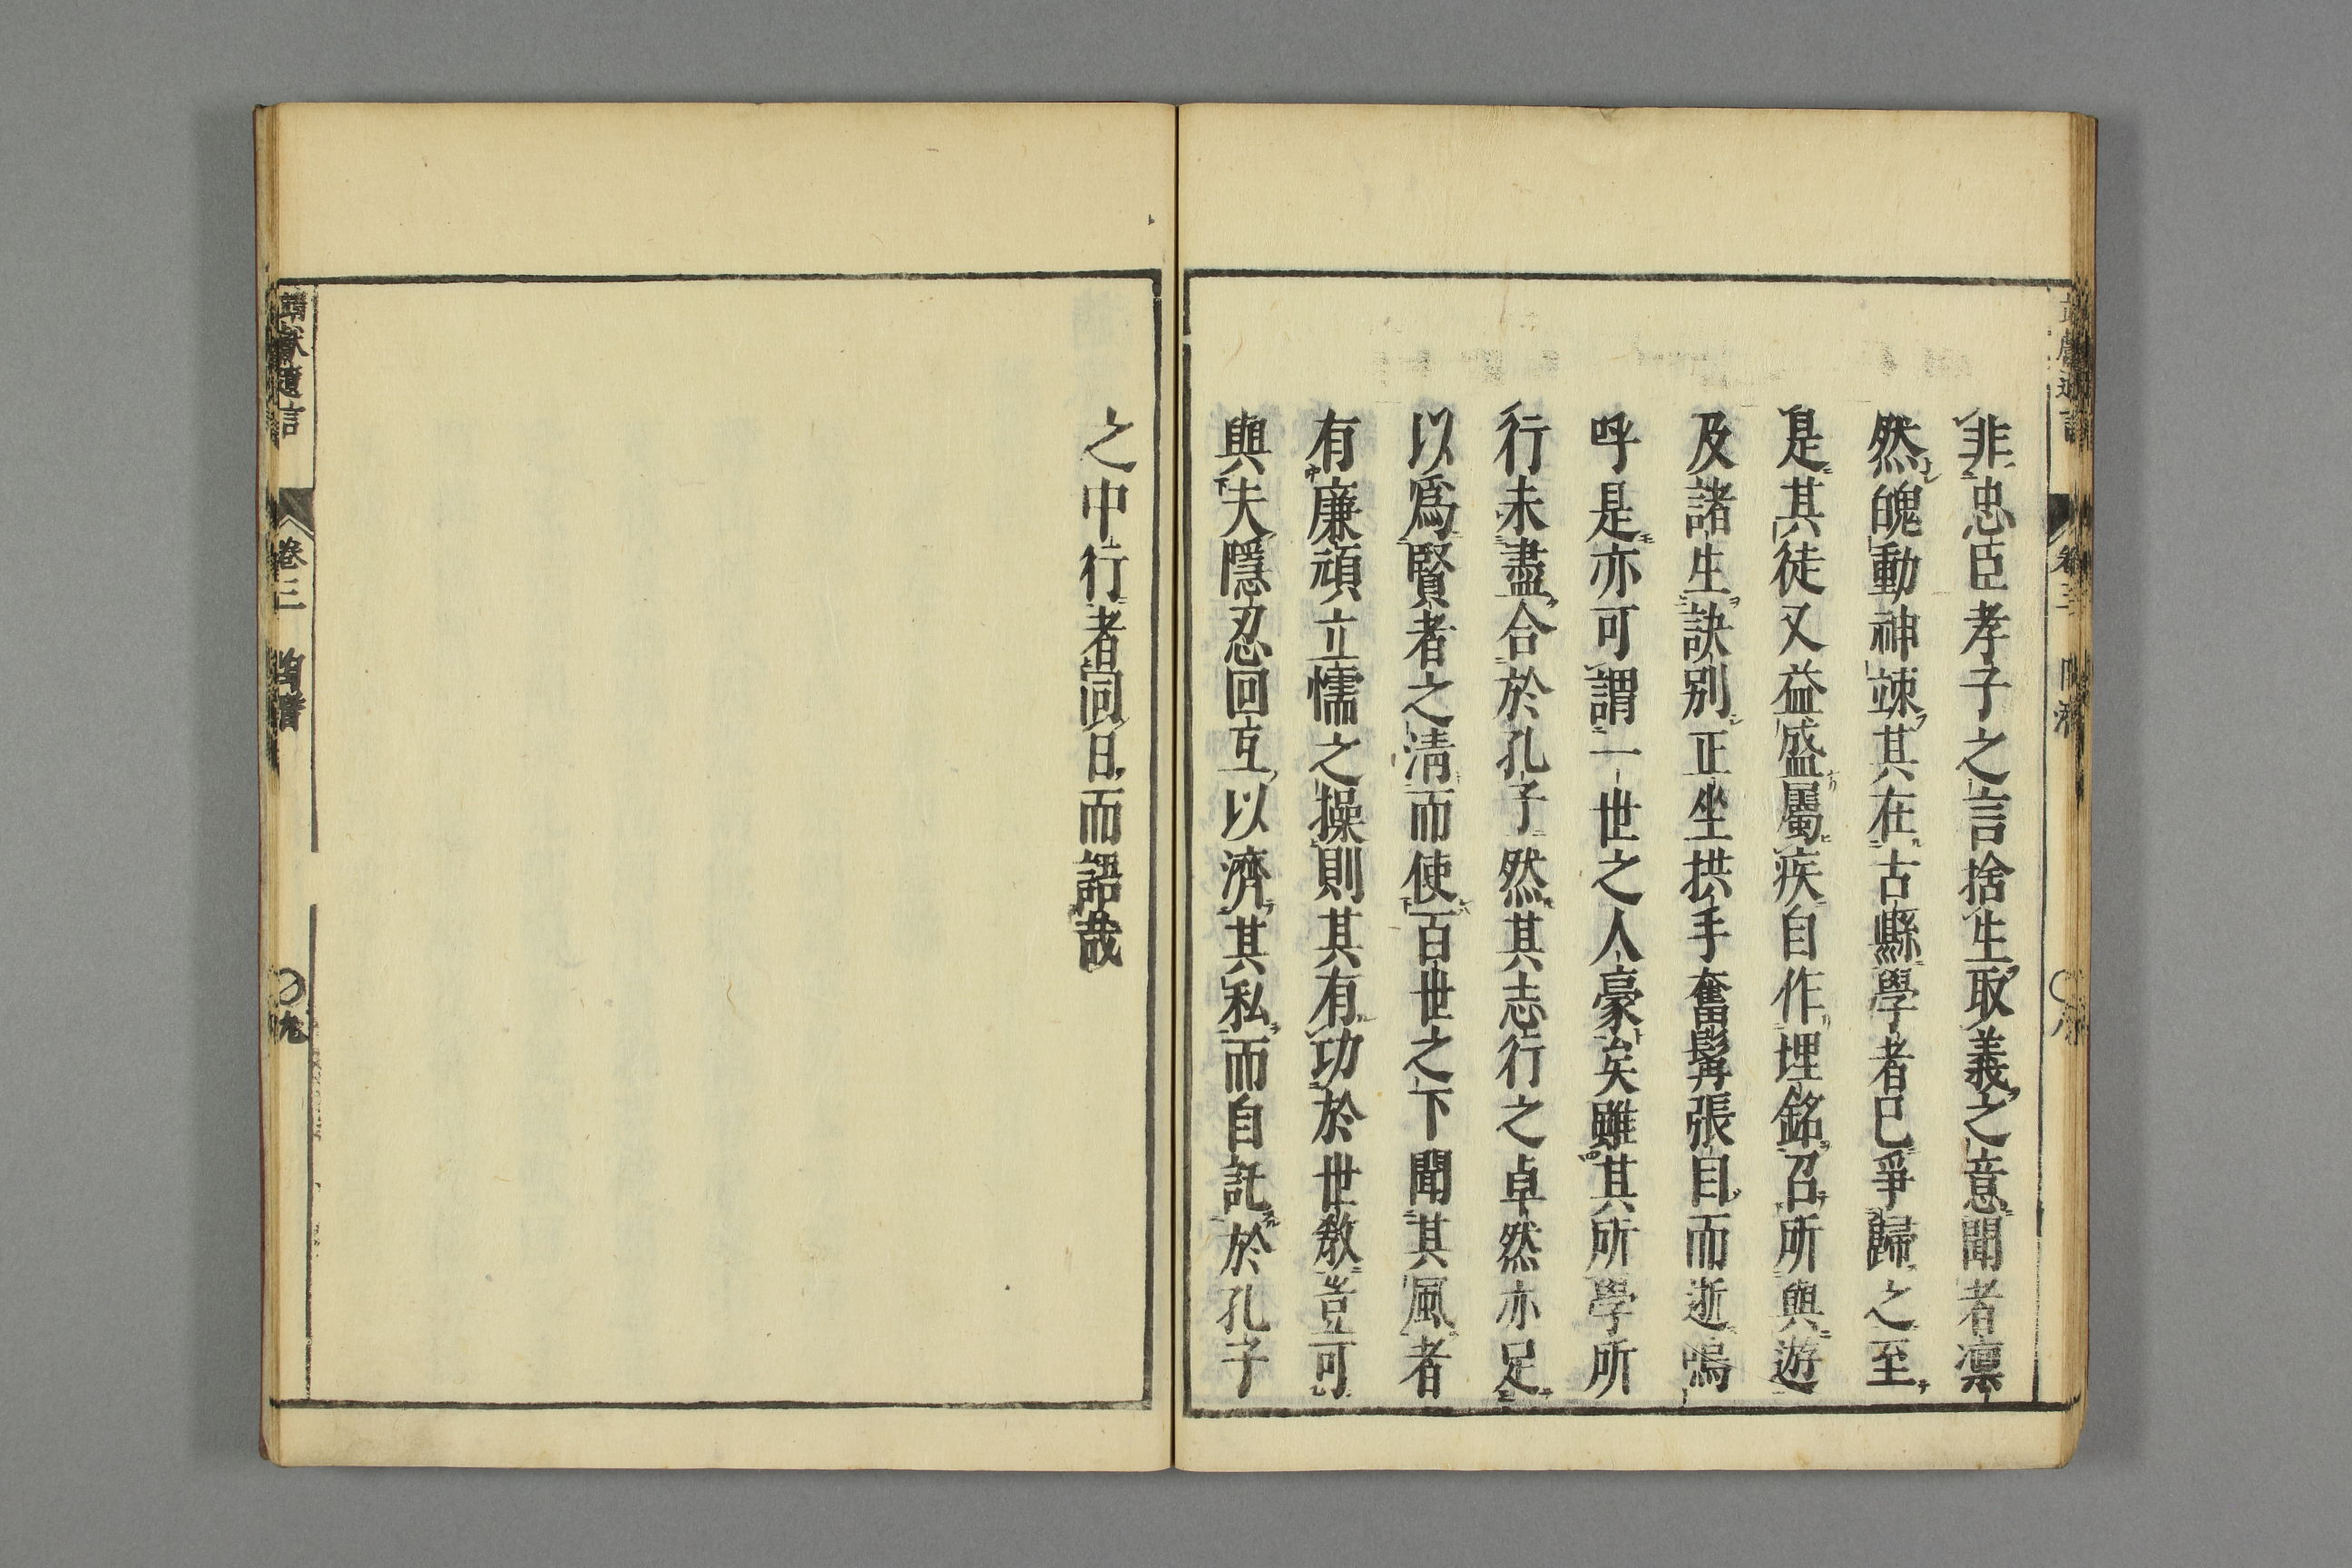 非忠臣孝子之言捨生取義之意聞者凛
然魄動神竦其在古縣學者已爭歸之至
是其徒又益盛屬疾自作埋銘召所與遊
及諸生訣別正坐拱手奮髯張目而逝嗚
呼是亦可謂一世之人豪矣雖其所學所
行未盡合於孔子然其志行之卓然亦足
以爲賢者之清而使百世之下聞其風者
有廉頑立懦之操則其有功於世敎豈可
與夫隱忍回互以濟其私而自託於孔子
之中行者同日而語哉
靖獻遺言
卷三
陶潛
九